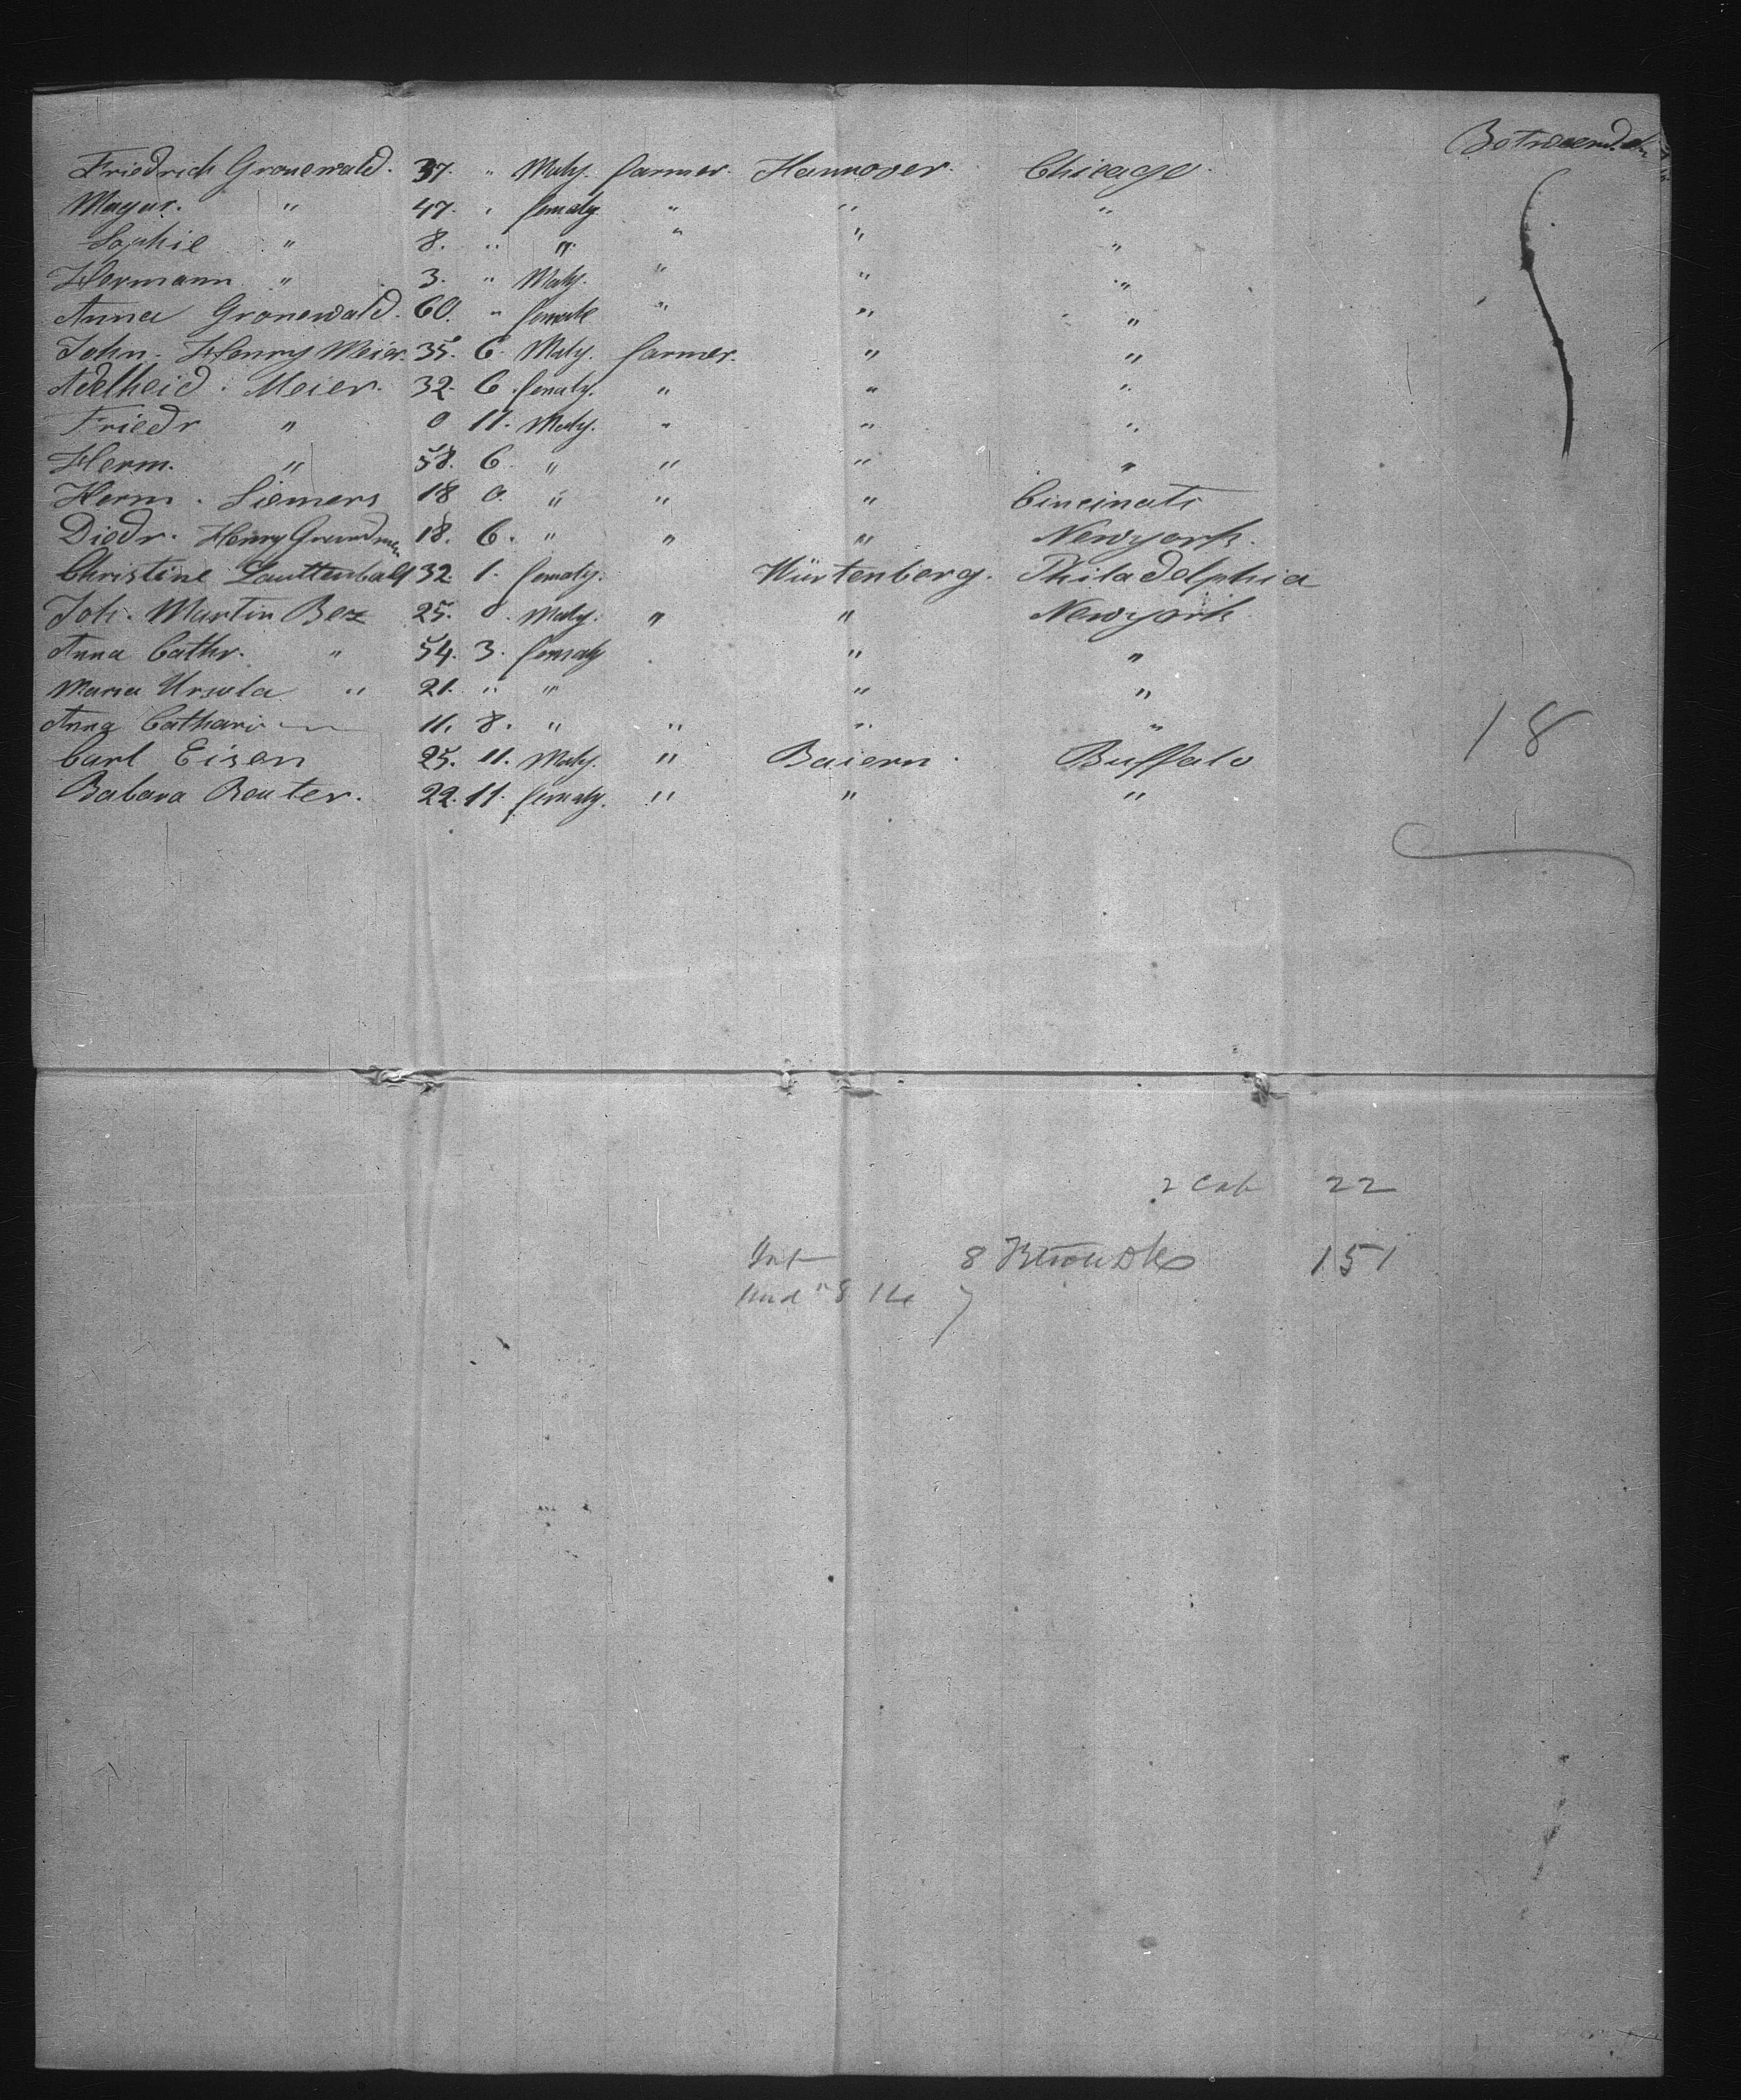 Betweendek
Friedrich Gronewald. 37. " Maly. farmer. Hannover. Chicago.
Magar. " 47. " femaly. " " "
Sophie " 8. " " " " "
Hermann " 3. " Maly. " " "
Anna Gronewald. 60. " female " " "
John. Henry Meier. 35. 6. Maly. farmer. " "
Adelheid. Meier. 32. 6. femaly. " " "
Friedr " 0 11. Maly. " " "
Herm. " 58. 6. " " " "
Herm. Siemers 18 0. " " " Cincinati
Diedr. Henry 18. 6. " " " Newyork.
Christine 32. 1. femaly. Würtenberg. Philadelphia
Joh. Martin Bez 25. 0. Maly. " " Newyork
Anna Cathr. " 54. 3. femaly " "
Maria Ursula " 21. " " " "
Anna Cathari 11. 8. " " " "
Carl Eisen 25. 11. Maly. " Baiern. Buffalo
Babara Reuter. 22. 11. femaly. " " "
18
2 Cab 22
Inf 8 151